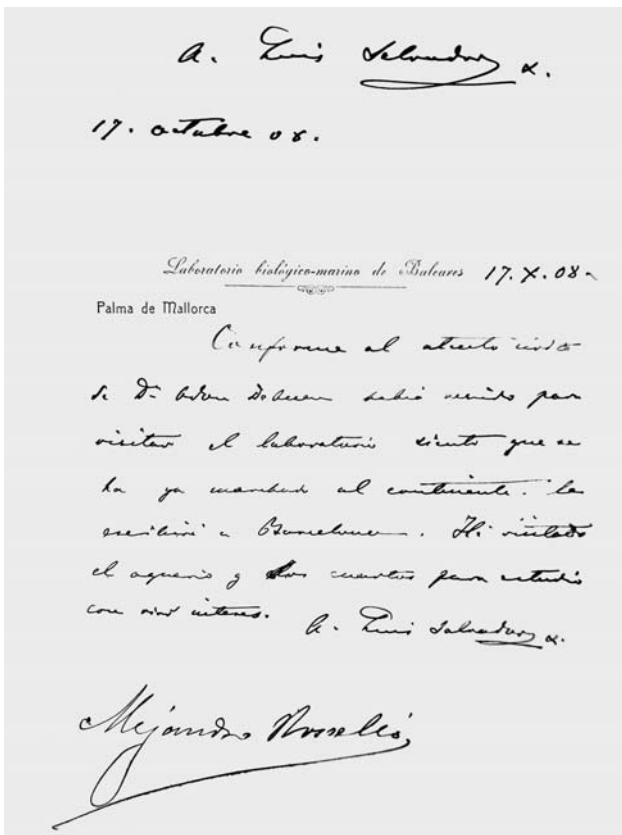 A. Luis Salvador
17. octubre 08.
Laboratorio biológico-marino de Baleares 17.X.08
Palma de Mallorca
Conforme al atento
de Dn Odon de Buen había venido para
visitar el laboratorio siento que se
ha ya marchado al continente. Le
escribiré a Barcelona. He visitado
el aquario y los cuartos para estudio
con vivo interes.
A. Luis Salvador
Alejandro Rosselló